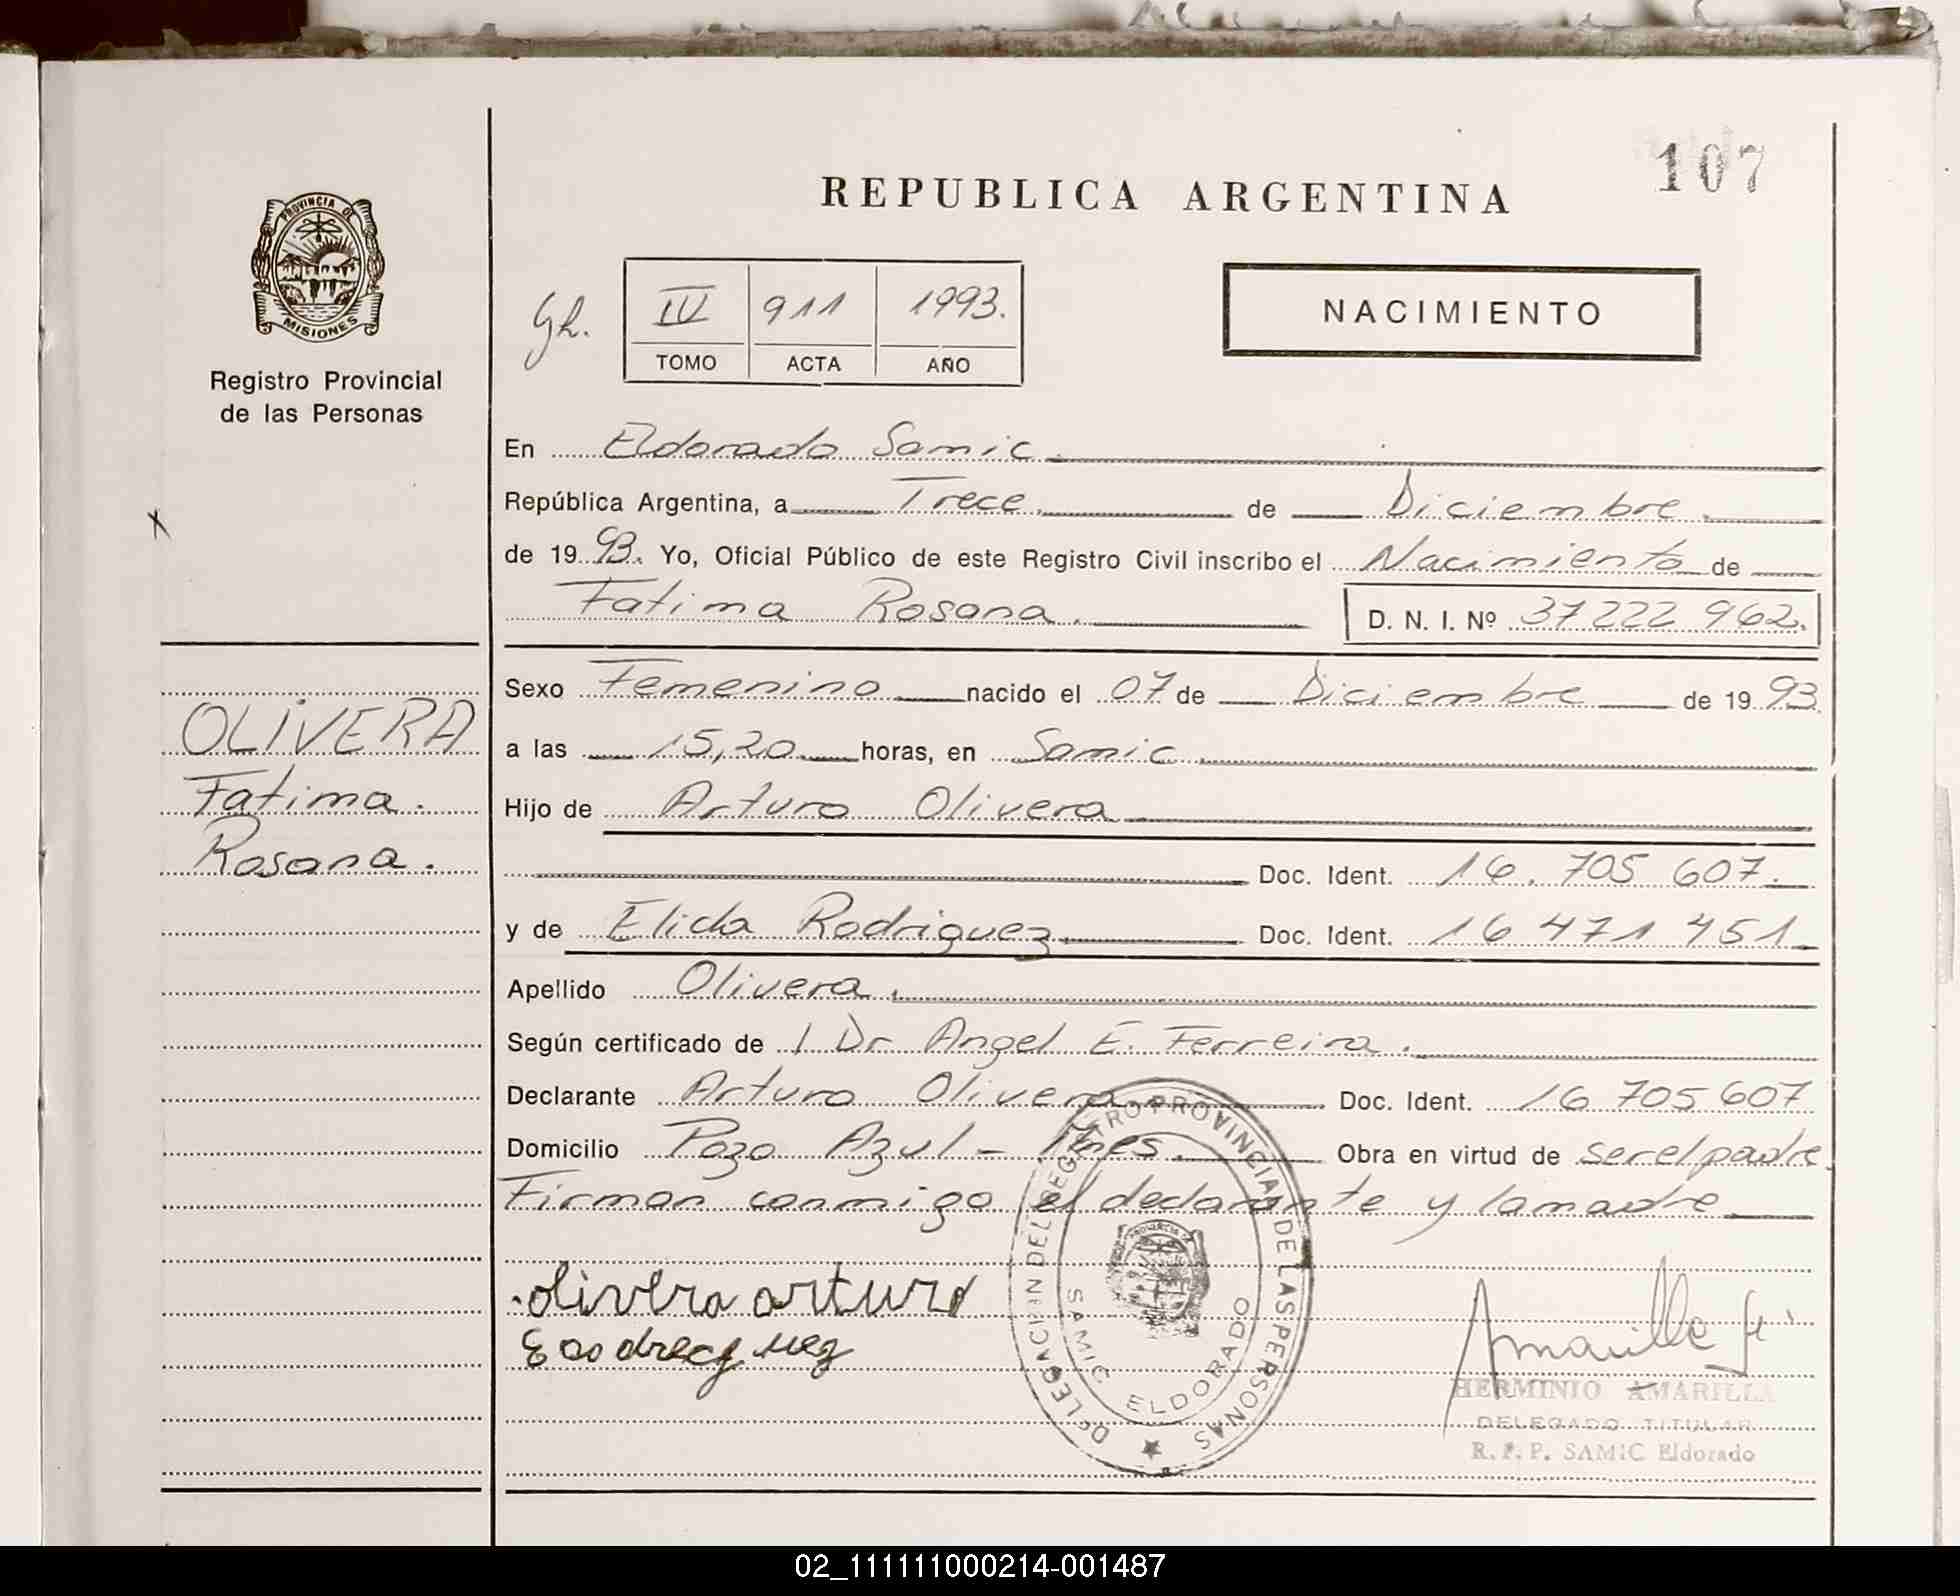 107
REPUBLICA ARGENTINA
PROVINCIA DE
MISIONES
Registro Provincial
de las Personas
Gh.
IV 911 1993.
TOMO ACTA AÑO
NACIMIENTO
En Eldorado Samic.
República Argentina, a Trece. de Diciembre.
de 19 93. Yo, Oficial Público de este Registro Civil inscribo el Nacimiento de
Fatima Rosana. D. N. I. Nº 37 222 962.
OLIVERA
Fatima.
Rosana.
Sexo Femenino nacido el 07 de Diciembre de 19 93
a las 15,20 horas, en Samic
Hijo de Arturo Olivera
Doc. Ident. 16.705 607.
y de Elida Rodriguez Doc. Ident. 16 471 451.
Apellido Olivera.
Según certificado de 1 Dr Angel E. Ferreira.
Declarante Arturo Olivera Doc. Ident. 16 705 607
Domicilio Pozo Azul - Mnes. Obra en virtud de ser el padre.
Firman conmigo el declarante y la madre
olivera arturo
DELEGACION DEL REGISTRO PROVINCIAL DE LAS PERSONAS
SAMIC ELDORADO
HERMINIO AMARILLA
DELEGADO TITULAR
R. P. P. SAMIC Eldorado
02_111111000214-001487